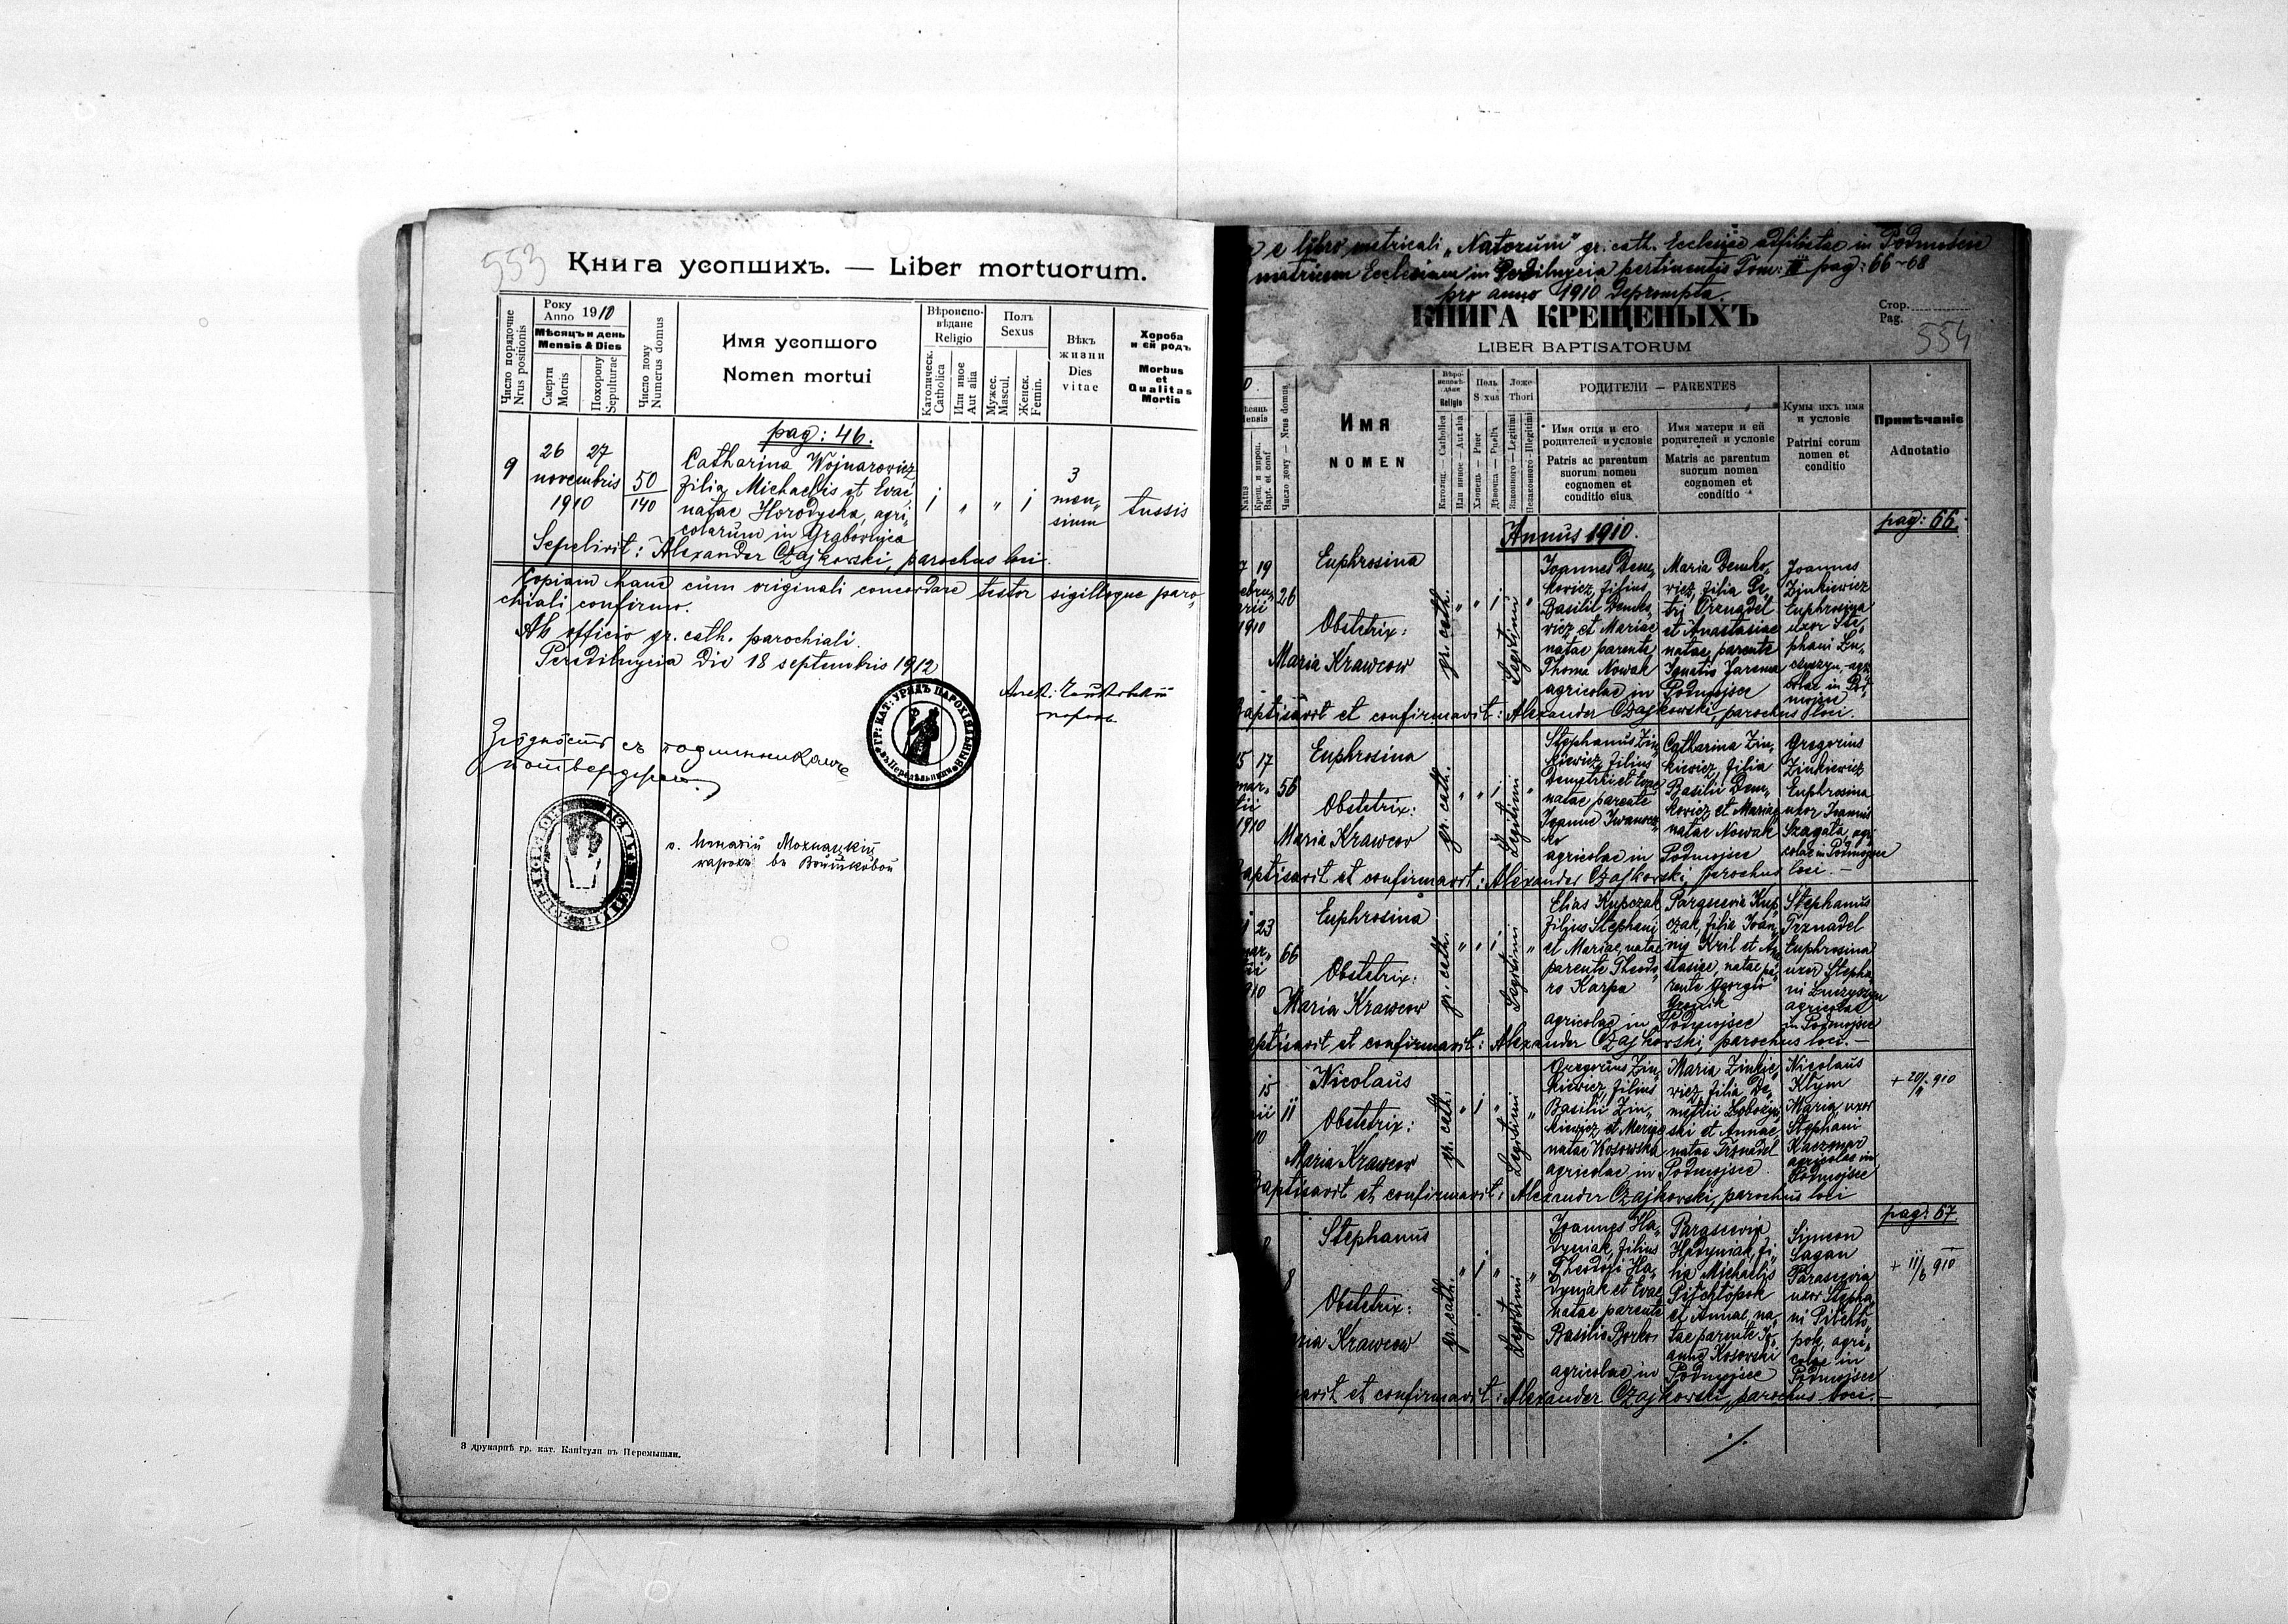 553
Книга усопшихъ. — Liber mortuorum.
Число порядочне
Nrus positionis
Року
Anno 1910
Мѣсяцъ и день
Mensis & Dies
Смерти
Mortis
Похорону
Sepulturae
Число дому
Numerus domus
Имя усопшого
Nomen mortui
Вѣроиспо-
вѣдане
Religio
Католическ.
Catholica
Или иное
Aut alia
Полъ
Sexus
Мужес.
Mascul.
Женск.
Femin.
Вѣкъ
жизни
Dies
vitae
Хороба
и ей родъ
Morbus
et
Qualitas
Mortis
pag: 46.
9
26 27
novembris
1910
50
140
Catharina Wojnarowicz
filia Michaelis et Evae
natae Horodyska, agri„
colarum in Grabovnica
1 „ „ 1
3
men„
sium
tussis
Sepelivit: Alexander Czajkowski, parochus loci.
Copiam hanc cum originali concordare testor sigilloque paro„
chiali confirmo.
Ab officio gr. cath. parochiali.
Peredilnycia die 18 septembris 1912
Алек: Чайковскій
парох
ГР: КАТ: УРЯДЪ ПАРОХІЯЛЬНЫЙ
въ Передѣльници
Згодность съ подлинникомъ
потверджаю.
о. Игнатій Мохнацкій
парохъ въ Войтковой
З друкарнѣ гр. кат. Капітули въ Перемышли.
e libro metricali „Natorum" gr. cath. Ecclesiae adfiliatae in Podmojsce
matricem Ecclesiam in Peredilnycia pertinentis Tom: III pag: 66-68
pro anno 1910 deprompta.
КНИГА КРЕЩЕНЫХЪ
LIBER BAPTISATORUM
Стор.
Pag.
554
Natus
Крещ. и мѵроп.
Bapt. et conf.
Число дому — Nrus domus
Имя
NOMEN
Вѣро-
исповѣ-
дане
Religio
Католиц. — Catholica
Или инное — Aut alia
Полъ
Sexus
Хлопець — Puer
Дѣвочка — Puella
Ложе
Thori
Законного — Legitimi
Незаконного — Illegitimi
РОДИТЕЛИ — PARENTES
Имя отця и его
родителей и условіе
Patris ac parentum
suorum nomen
cognomen et
conditio eius
Имя матери и ей
родителей и условіе
Matris ac parentum
suorum nomen
cognomen et
conditio
Кумы ихъ имя
и условіе
Patrini eorum
nomen et
conditio
Примѣчаніе
Adnotatio
Annus 1910.
pag: 66.
19
1910
26
Euphrosina
Obstetrix:
Maria Krawcow
gr. cath.
„ „ 1
Legitimi
„
Joannes Dem„
kowicz, filius
Basilii Demko„
wicz et Mariae
natae parente
Thoma Nowak
agricolae in
Maria Demko„
wicz, filia Pe„
tri Trznadel
et Anastasiae
natae parente
Ignatio Jarema
Podmojsce
Joannes
Zinkiewicz
Euphrosina
uxor Ste„
phani Lu„
czyszyn, agri„
colae in Pod„
mojsce
Baptisavit et confirmavit: Alexander Czajkowski, parochus loci.
17
1910
56
Euphrosina
Obstetrix:
Maria Krawcow
gr. cath.
„ „ 1
Legitimi
„
Stephanus Zin„
kiewicz, filius
Demetrii et Evae
natae parente
Joanne Iwanec„
ko
agricolae in
Catharina Zin„
kiewicz, filia
Basilii Dem„
kowicz et Mariae
natae Nowak
Podmojsce
Gregorius
Zinkiewicz
Euphrosina
uxor Joannis
Szagata, agri„
colae in Podmojsce
Baptisavit et confirmavit: Alexander Czajkowski, parochus loci. —
23
66
Euphrosina
Obstetrix:
Maria Krawcow
gr. cath.
„ „ 1
Legitimi
„
Elias Kupczak
filius Stephani
et Mariae, natae
parente Theodo„
ro Karpa
agricolae in
Parascevia Kup„
czak, filia Joan„
nis Kril et Ana„
stasiae, natae pa„
rente Georgio
Podmojsce
Stephanus
Trznadel
Euphrosina
uxor Stepha„
ni Luczyszyn
agricolae
in Podmojsce
Baptisavit et confirmavit: Alexander Czajkowski, parochus loci. —
15
11
Nicolaus
Obstetrix:
Maria Krawcow
gr. cath.
„ 1 „
Legitimi
„
Gregorius Zin„
kiewicz, filius
Basilii Zin„
kiewicz et Mariae
natae Kosowska
agricolae in
Maria Zinkie„
wicz, filia De„
metrii Lobozyn„
ski et Annae,
natae Trznadel
Podmojsce
Nicolaus
Klym
Maria, uxor
Stephani
Kaczmar
agricolae in
Podmojsce
+ 20/ 910
Baptisavit et confirmavit: Alexander Czajkowski, parochus loci
pag: 67.
8
Stephanus
Obstetrix:
Maria Krawcow
gr. cath.
„ 1 „
Legitimi
„
Joannes Ha„
dyniak, filius
Theodori Ha„
dyniak et Evae,
natae parente
Basilio Borkos
agricolae in
Parascevia
Hadyniak, fi„
lia Michaelis
Pitchtopok
et Annae, na„
tae parente Jo„
anne Kosowski
Podmojsce
Simeon
Sagan
Parascevia
uxor Stepha„
ni Pitchto„
pok, agri„
colae in
Podmojsce
+ 11/6 910
Baptisavit et confirmavit: Alexander Czajkowski, parochus loci. —
./.